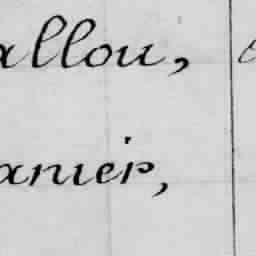 allou,
anier,